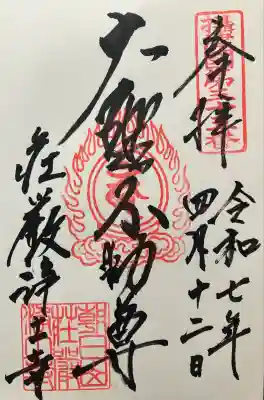 奉拝
令和七年
四月十二日
大聖不動尊
荘厳浄土寺
朝日山